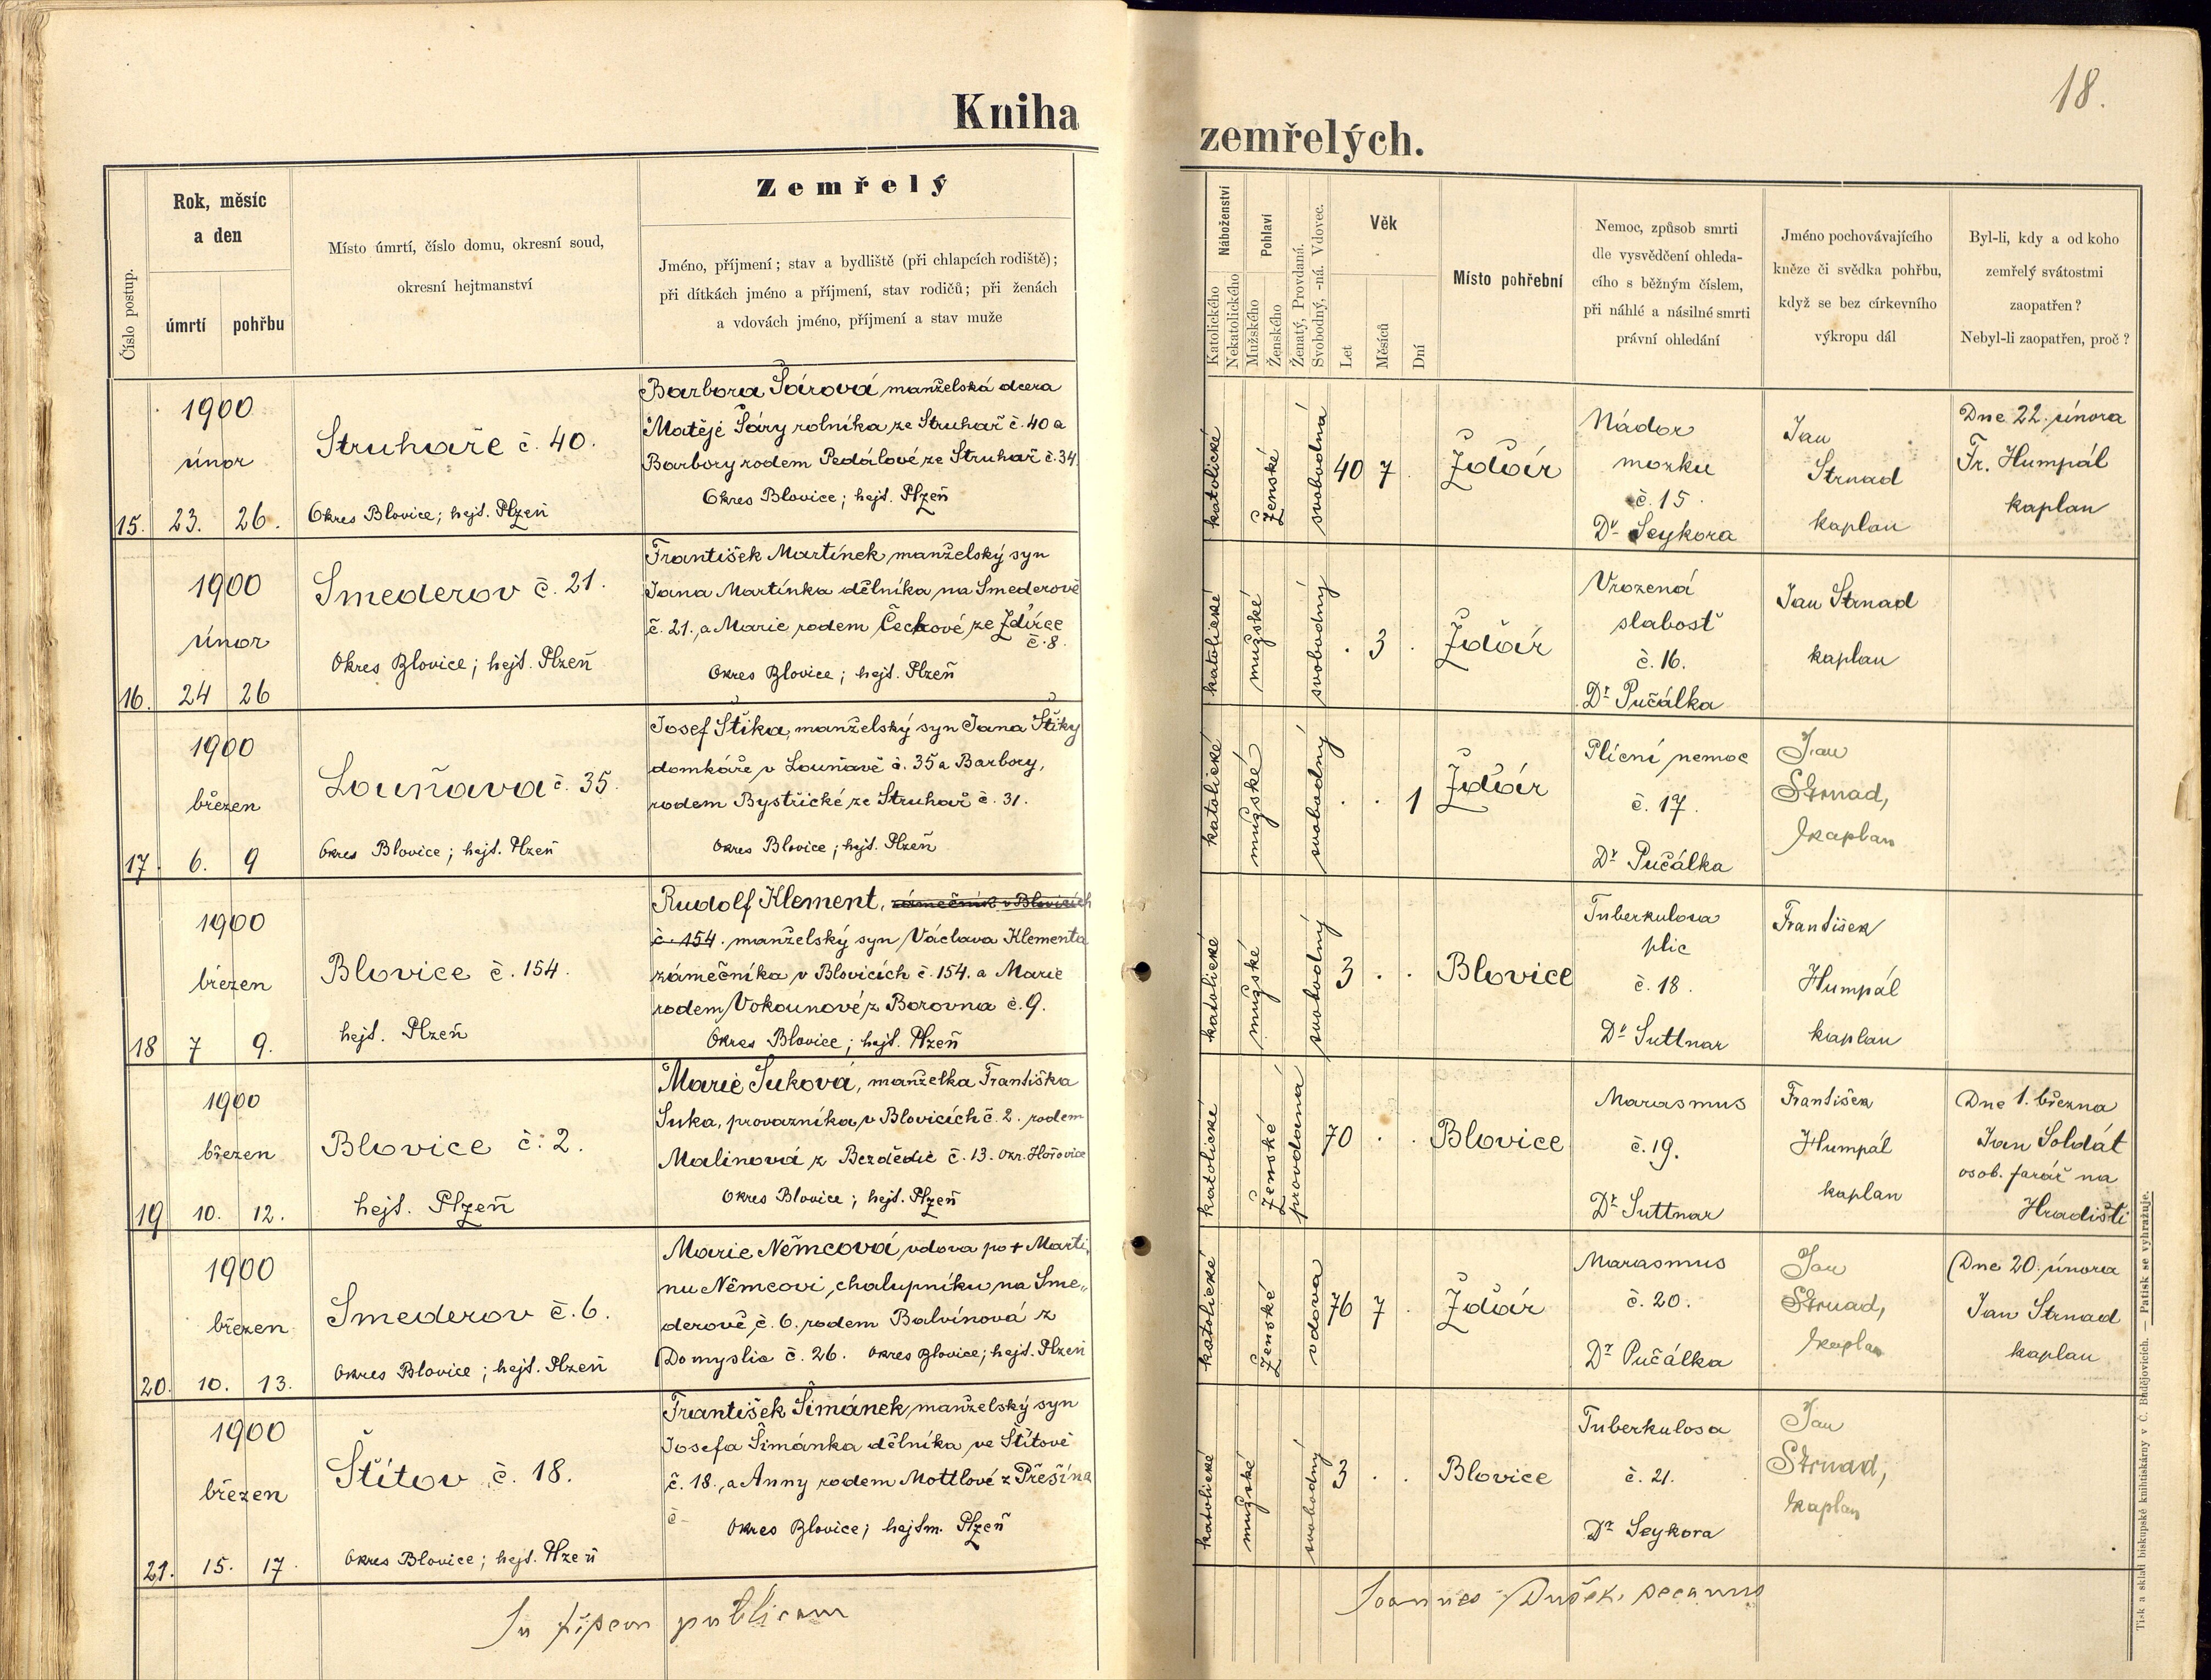 18.
Kniha
zemřelých.
Číslo postup.
Rok, měsíc
a den
úmrtí
pohřbu
Místo úmrtí, číslo domu, okresní soud,
okresní hejtmanství
Zemřelý
Jméno, příjmení; stav a bydliště (při chlapcích rodiště);
při dítkách jméno a příjmení, stav rodičů; při ženách
a vdovách jméno, příjmení a stav muže
Náboženství
Katolického
Nekatolického
Pohlaví
Mužského
Ženského
Ženatý, Provdaná.
Svobodný, -ná. Vdovec.
Věk
Let
Měsíců
Dní
Místo pohřební
Nemoc, způsob smrti
dle vysvědčení ohleda-
cího s běžným číslem,
při náhlé a násilné smrti
právní ohledání
Jméno pochovávajícího
kněze či svědka pohřbu,
když se bez církevního
výkropu dál
Byl-li, kdy a od koho
zemřelý svátostmi
zaopatřen?
Nebyl-li zaopatřen, proč?
15.
1900
únor
23. 26.
Struhaře č. 40.
Okres Blovice; hejt. Plzeň
Barbora Šárová manželská dcera
Matěje Šáry rolníka ze Struhař č. 40 a
Barbory rodem Pedálové ze Struhař č. 34
Okres Blovice; hejt. Plzeň
katolické
ženské
svobodná
40 7
Žďár
Nádor
mozku
č. 15.
Dr Seykora
Jan
Strnad
kaplan
Dne 22. února
Fr. Humpál
kaplan
16.
1900
únor
24 26
Smederov č. 21.
Okres Blovice; hejt. Plzeň
František Martínek, manželský syn
Jana Martínka dělníka na Smederově
č. 21., a Marie, rodem Čechové ze Ždírce
č. 8.
Okres Blovice; hejt. Plzeň
katolické
mužské
svobodný
. 3 .
Žďár
Vrozená
slabosť
č. 16.
Dr Pučálka
Jan Strnad
kaplan
17.
1900
březen
6. 9
Louňava č. 35.
Okres Blovice; hejt. Plzeň
Josef Štika, manželský syn Jana Štiky
domkáře v Louňavě č. 35 a Barbory,
rodem Bystřické ze Struhař č. 31.
Okres Blovice; hejt. Plzeň
katolické
mužské
svobodný
. . 1
Žďár
Plícní nemoc
č. 17.
Dr Pučálka
Jan
Strnad,
kaplan
18
1900
březen
7 9.
Blovice č. 154.
hejt. Plzeň
Rudolf Klement, zámečník v Blovicích
č. 154. manželský syn Václava Klementa
zámečníka v Blovicích č. 154. a Marie
rodem Vokounové z Borovna č. 9.
Okres Blovice; hejt. Plzeň
katolické
mužské
svobodný
3 . .
Blovice
Tuberkulosa
plic
č. 18.
Dr Suttnar
František
Humpál
kaplan
19
1900
březen
10. 12.
Blovice č. 2.
hejt. Plzeň
Marie Suková, manželka Františka
Suka, provazníka, v Blovicích č. 2. rodem
Malinová z Bezdědic č. 13. okr. Hořovice
Okres Blovice; hejt. Plzeň
katolické
ženské
provdaná
70 . .
Blovice
Marasmus
č. 19.
Dr Suttnar
František
Humpál
kaplan
Dne 1. března
Jan Soldát
osob. farář na
Hradišti
20.
1900
březen
10. 13.
Smederov č. 6.
Okres Blovice; hejt. Plzeň
Marie Němcová, vdova po + Marti
nu Němcovi, chalupníku, na Sme„
derově, č. 6. rodem Balvínová z
Domyslic č. 26. Okres Blovice; hejt. Plzeň
katolické
ženské
vdova
76 7 .
Žďár
Marasmus
č. 20.
Dr Pučálka
Jan
Strnad,
kaplan
Dne 20. února
Jan Strnad
kaplan
21.
1900
březen
15. 17.
Štítov č. 18.
Okres Blovice; hejt. Plzeň
František Šimánek, manželský syn
Josefa Šimánka dělníka, ve Štítově
č. 18., a Anny rodem Mottlové z Přešína
č-
Okres Blovice; hejtm. Plzeň
katolické
mužské
svobodný
3 . .
Blovice
Tuberkulosa
č. 21.
Dr Seykora
Jan
Strnad,
kaplan
In publicam
Joannes Dušek, decanus
Tisk a sklad biskupské knihtiskárny v Č. Budějovicích. — Patisk se vyhražuje.